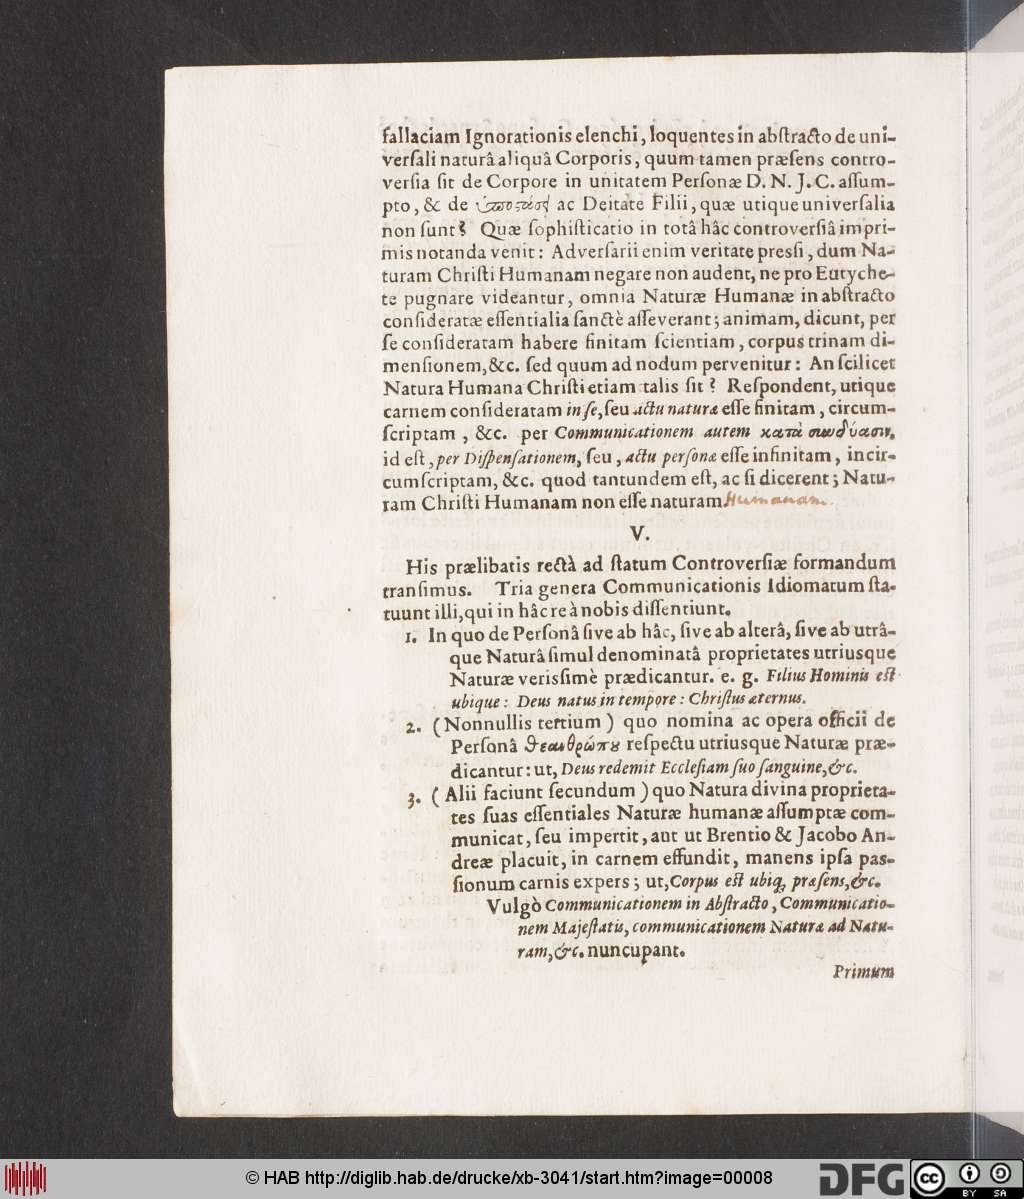 fallaciam Ignorationis elenchi, loquentes in abſtracto de uni-
verſali naturâ aliquâ Corporis, quum tamen præſens contro-
verſia ſit de Corpore in unitatem Perſonæ D. N. J. C. aſſum-
pto, & de ὑποστάσει ac Deitate Filii, quæ utique univerſalia
non ſunt? Quæ ſophiſticatio in totâ hâc controverſiâ impri-
mis notanda venit: Adverſarii enim veritate preſſi, dum Na-
turam Chriſti Humanam negare non audent, ne pro Eutyche-
te pugnare videantur, omnia Naturæ Humanæ in abſtracto
conſideratæ eſſentialia ſanctè aſſeverant; animam, dicunt, per
ſe conſideratam habere finitam ſcientiam, corpus trinam di-
menſionem, &c. ſed quum ad nodum pervenitur: An ſcilicet
Natura Humana Chriſti etiam talis ſit? Reſpondent, utique
carnem conſideratam in ſe, ſeu actu naturæ eſſe finitam, circum-
ſcriptam, &c. per Communicationem autem κατὰ συνδύασιν,
id eſt, per Diſpenſationem, ſeu, actu perſonæ eſſe infinitam, incir-
cumſcriptam, &c. quod tantundem eſt, ac ſi dicerent; Natu-
ram Chriſti Humanam non eſſe naturam Humanam.
V.
His prælibatis rectà ad ſtatum Controverſiæ formandum
tranſimus. Tria genera Communicationis Idiomatum ſta-
tuunt illi, qui in hâc re à nobis diſſentiunt.
1. In quo de Perſonâ ſive ab hâc, ſive ab alterâ, ſive ab utrâ-
que Naturâ ſimul denominatâ proprietates utriusque
Naturæ veriſſimè prædicantur. e. g. Filius Hominis eſt
ubique: Deus natus in tempore: Chriſtus æternus.
2. (Nonnullis tertium) quo nomina ac opera officii de
Perſonâ θεανθρώπου reſpectu utriusque Naturæ præ-
dicantur: ut, Deus redemit Eccleſiam ſuo ſanguine, &c.
3. (Alii faciunt ſecundum) quo Natura divina proprieta-
tes ſuas eſſentiales Naturæ humanæ aſſumptæ com-
municat, ſeu impertit, aut ut Brentio & Jacobo An-
dreæ placuit, in carnem effundit, manens ipſa paſ-
ſionum carnis expers; ut, Corpus eſt ubiq; præſens, &c.
Vulgò Communicationem in Abſtracto, Communicatio-
nem Majeſtatis, communicationem Naturæ ad Natu-
ram, &c. nuncupant.
Primum
© HAB http://diglib.hab.de/drucke/xb-3041/start.htm?image=00008
DFG
cc
BY SA